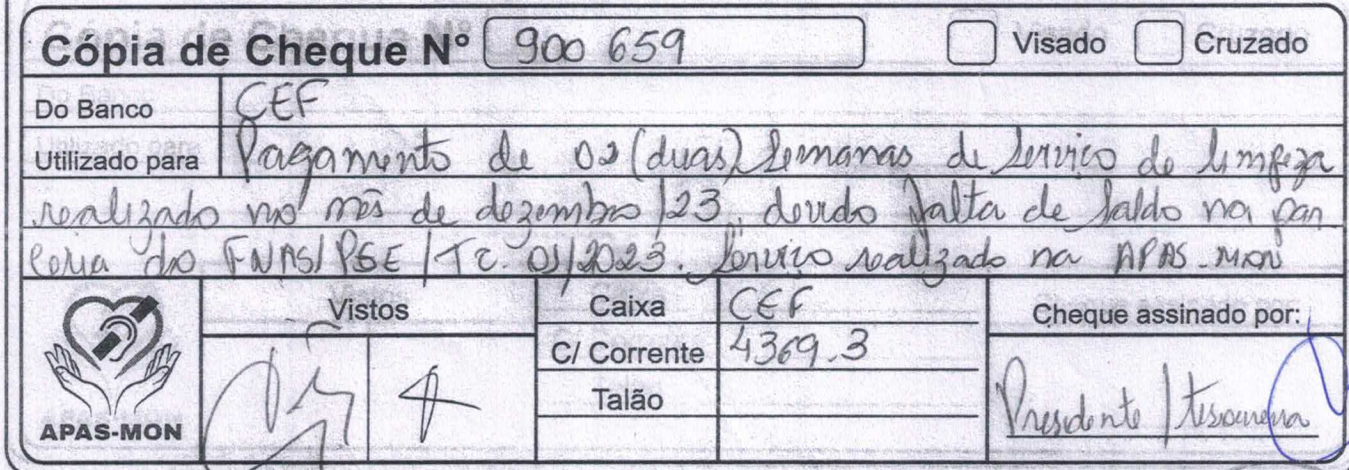 Cópia de Cheque Nº 900 659 Visado Cruzado
Do Banco CEF
Utilizado para Pagamento de 02 (duas) semanas de serviço de limpeza
realizado no mês de dezembro/23. devido falta de saldo na par
ceria do FNAS/PSE/TC. 01/2023. Serviço realizado na APAS-MON
Vistos
Caixa CEF
C/ Corrente 4369.3
Talão
Cheque assinado por:
Presidente / tesoureira
APAS-MON